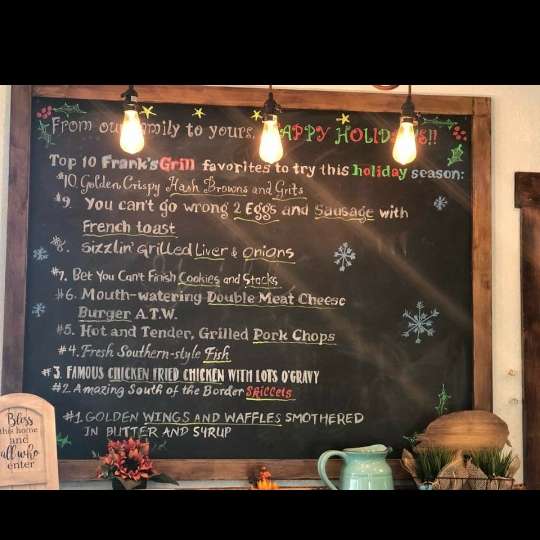 From our family to yours, HAPPY HOLIDAYS!!
Top 10 Frank's Grill favorites to try this holiday season:
#10. Golden, Crispy Hash Browns and Grits
#9. You can't go wrong 2 Eggs and Sausage with
French toast
#8. Sizzlin' Grilled Liver & Onions
#7. Bet You Can't Finish Cookies and Stacks
#6. Mouth-watering Double Meat Cheese
Burger A.T.W.
#5. Hot and Tender, Grilled Pork Chops
#4. Fresh Southern-style Fish
#3. FAMOUS CHICKEN FRIED CHICKEN WITH LOTS O'GRAVY
#2. Amazing South of the Border
#1. GOLDEN WINGS AND WAFFLES SMOTHERED
IN BUTTER AND SYRUP
Bless
this home
and
all who
enter